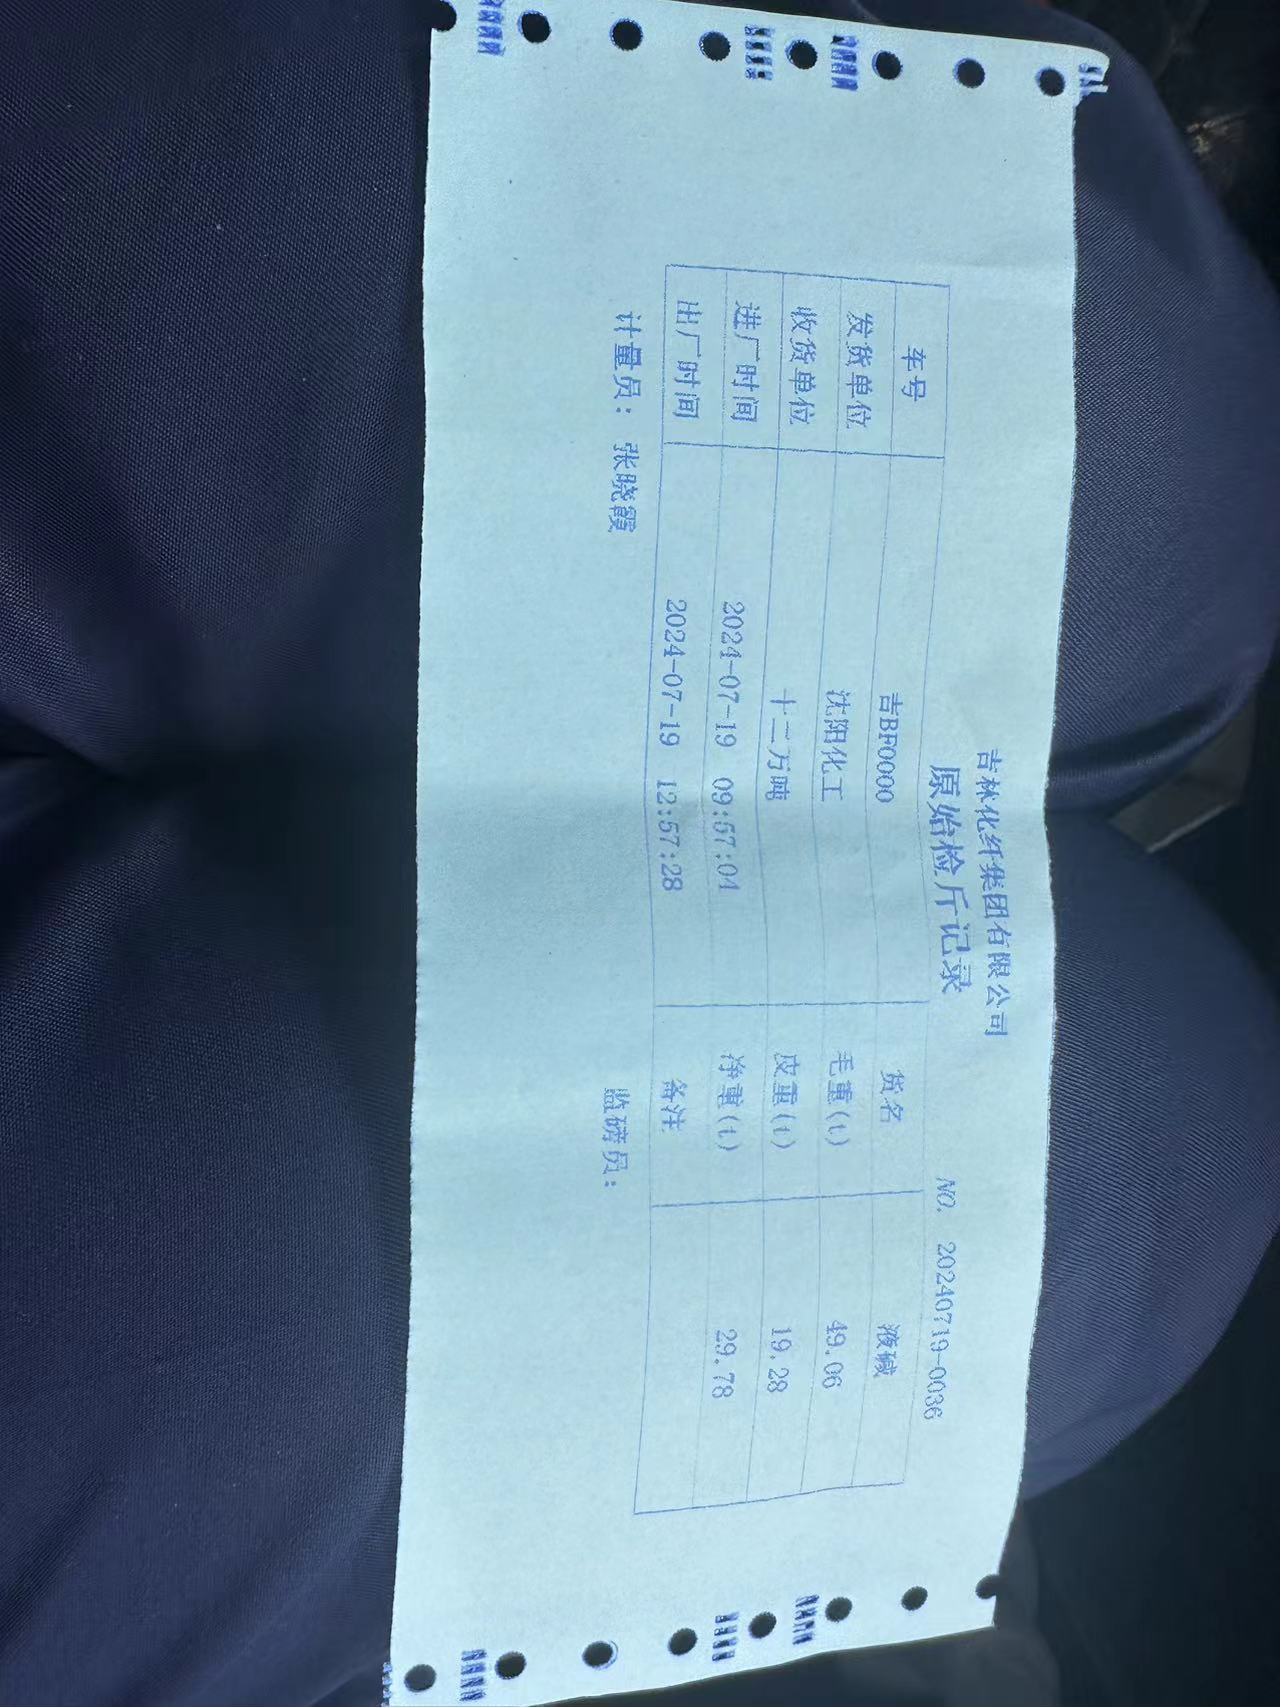 吉林化纤集团有限公司
原始检斤记录
NO. 20240719-0036
车号 吉BF0000 货名 液碱
发货单位 沈阳化工 毛重(t) 49.06
收货单位 十二万吨 皮重(t) 19.28
进厂时间 2024-07-19 09:57:04 净重(t) 29.78
出厂时间 2024-07-19 12:57:28 备注
计量员: 张晓霞 监磅员: